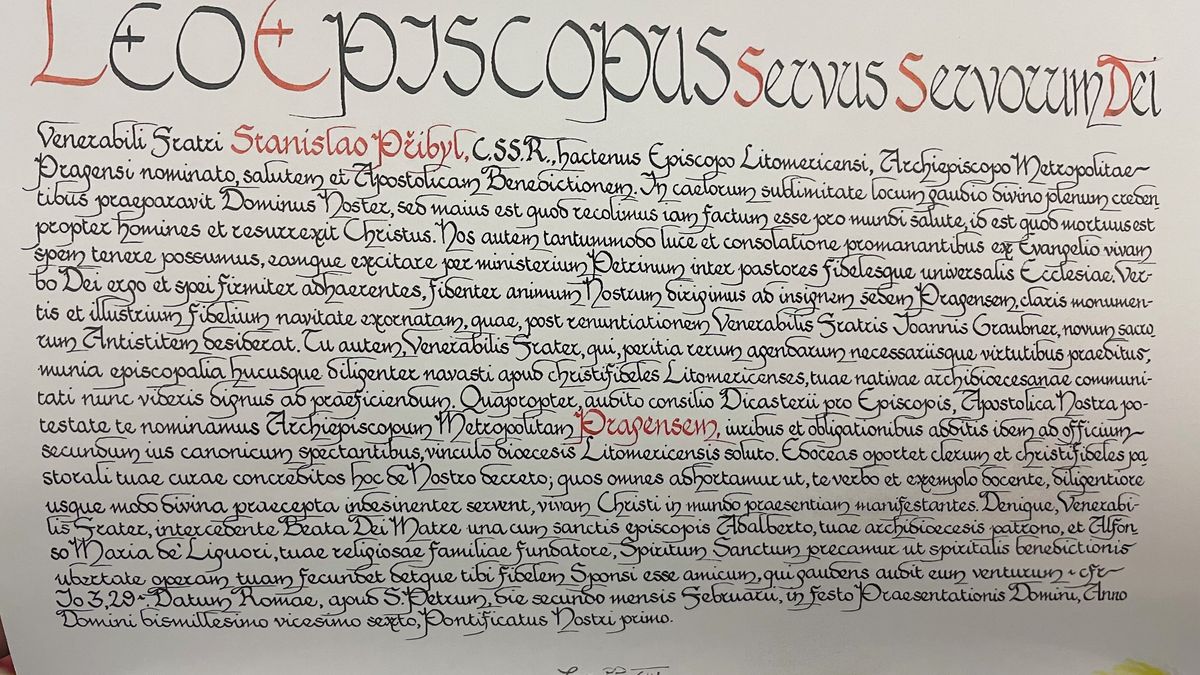 LEO EPISCOPUS Servus Servorum Dei
Venerabili Fratri Stanislao Přibyl, C.SS.R., hactenus Episcopo Litomericensi, Archiepiscopo Metropolitae
Pragensi nominato, salutem et Apostolicam Benedictionem. In caelorum sublimitate locum gaudio divino plenum creden
tibus praeparavit Dominus Noster, sed maius est quod recolimus iam factum esse pro mundi salute, id est quod mortuus est
propter homines et resurrexit Christus. Nos autem tantummodo luce et consolatione promanantibus ex Evangelio vivam
spem tenere possumus, eamque excitare per ministerium Petrinum inter pastores fidelesque universalis Ecclesiae. Ver-
bo Dei ergo et spei firmiter adhaerentes, fidenter animum Nostrum dirigimus ad insignem sedem Pragensem, claris monumen-
tis et illustrium fidelium navitate exornatam, quae, post renuntiationem Venerabilis Fratris Ioannis Graubner, novum sacro
rum Antistitem desiderat. Tu autem, Venerabilis Frater, qui, peritia rerum agendarum necessariisque virtutibus praeditus,
munia episcopalia hucusque diligenter navasti apud christifideles Litomericenses, tuae nativae archidioecesanae communi-
tati nunc videris dignus ad praeficiendum. Quapropter, audito consilio Dicasterii pro Episcopis, Apostolica Nostra po-
testate te nominamus Archiepiscopum Metropolitam Pragensem, iuribus et obligationibus additis idem ad officium
secundum ius canonicum spectantibus, vinculo dioecesis Litomericensis soluto. Edoceas oportet clerum et christifideles pa
storali tuae curae concreditos hoc de Nostro decreto; quos omnes adhortamur ut, te verbo et exemplo docente, diligentiore
usque modo divina praecepta indesinenter servent, vivam Christi in mundo praesentiam manifestantes. Denique, Venerabi-
lis Frater, intercedente Beata Dei Matre una cum sanctis episcopis Adalberto, tuae archidioecesis patrono, et Alfon
so Maria de' Liguori, tuae religiosae familiae fundatore, Spiritum Sanctum precamur ut spiritalis benedictionis
ubertate operam tuam fecundet detque tibi fidelem Sponsi esse amicum, qui gaudens audit eum venturum - cfr
Io 3, 29 - Datum Romae, apud S. Petrum, die secundo mensis Februarii, in festo Praesentationis Domini, Anno
Domini bismillesimo vicesimo sexto, Pontificatus Nostri primo.